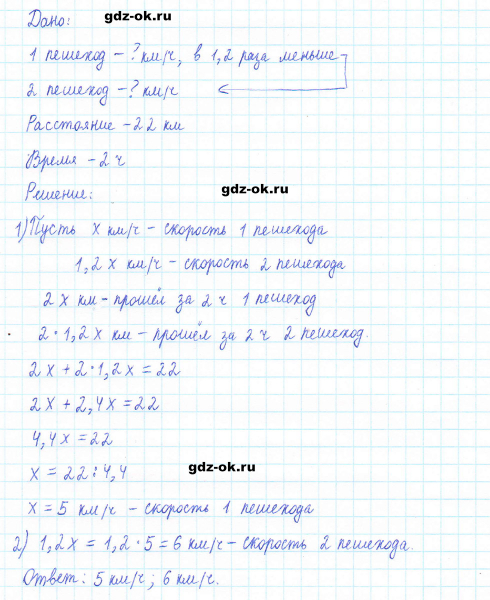 gdz-ok.ru
Дано:
1 пешеход – ? км/ч, в 1,2 раза меньше
2 пешеход – ? км/ч
Расстояние – 22 км
Время – 2 ч
gdz-ok.ru
Решение:
1) Пусть x км/ч – скорость 1 пешехода
1,2x км/ч – скорость 2 пешехода
2x км – прошёл за 2 ч 1 пешеход
2 · 1,2x км – прошёл за 2 ч 2 пешеход.
2x + 2 · 1,2x = 22
2x + 2,4x = 22
4,4x = 22
gdz-ok.ru
x = 22 : 4,4
x = 5 км/ч – скорость 1 пешехода
2) 1,2x = 1,2 · 5 = 6 км/ч – скорость 2 пешехода.
Ответ: 5 км/ч; 6 км/ч.